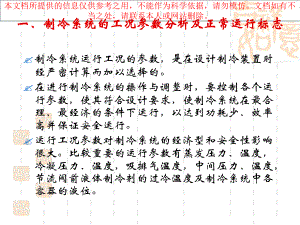 本文档所提供的信息仅供参考之用，不能作为科学依据，请勿模仿。文档如有不
当之处，请联系本人或网站删除。
一．制冷系统的工况参数分析及正常运行标志
制冷系统运行工况的参数，是在设计制冷装置时
经严密计算而加以选择的。
在进行制冷系统的操作与调整时，要控制各个运行
参数，使其符合设计要求，使系统在最合理、
最经济的条件下进行运行，以减少成本、效率
高并保证安全运行。
运行工况参数对制冷系统的经济型和安全性影响
很大。比较重要的运行参数有蒸发压力、温度，
冷凝压力、温度，吸排气温度，中间压力、温度，
节流阀前液体制冷剂的过冷温度及制冷系统中各
容器的液位。